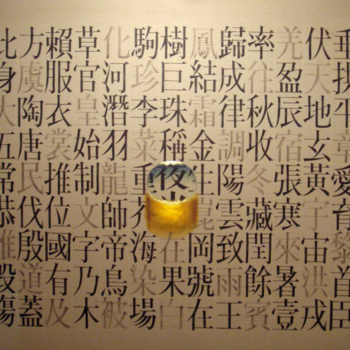 垂拱平章愛育黎首臣
伏天地玄黃宇宙洪戎
羌盈辰宿張寒來暑壹
率往秋收冬藏閏餘賓
歸成律調陽雲致雨王
鳳結霜金生崑岡號在
樹巨珠稱夜光在果白
駒珍李菜重芥海染場
化河潛羽龍師帝鳥被
草官皇始制文字乃木
賴服衣裳推位國有及
方虞陶唐民伐殷道蓋
比身大五常恭惟毀傷